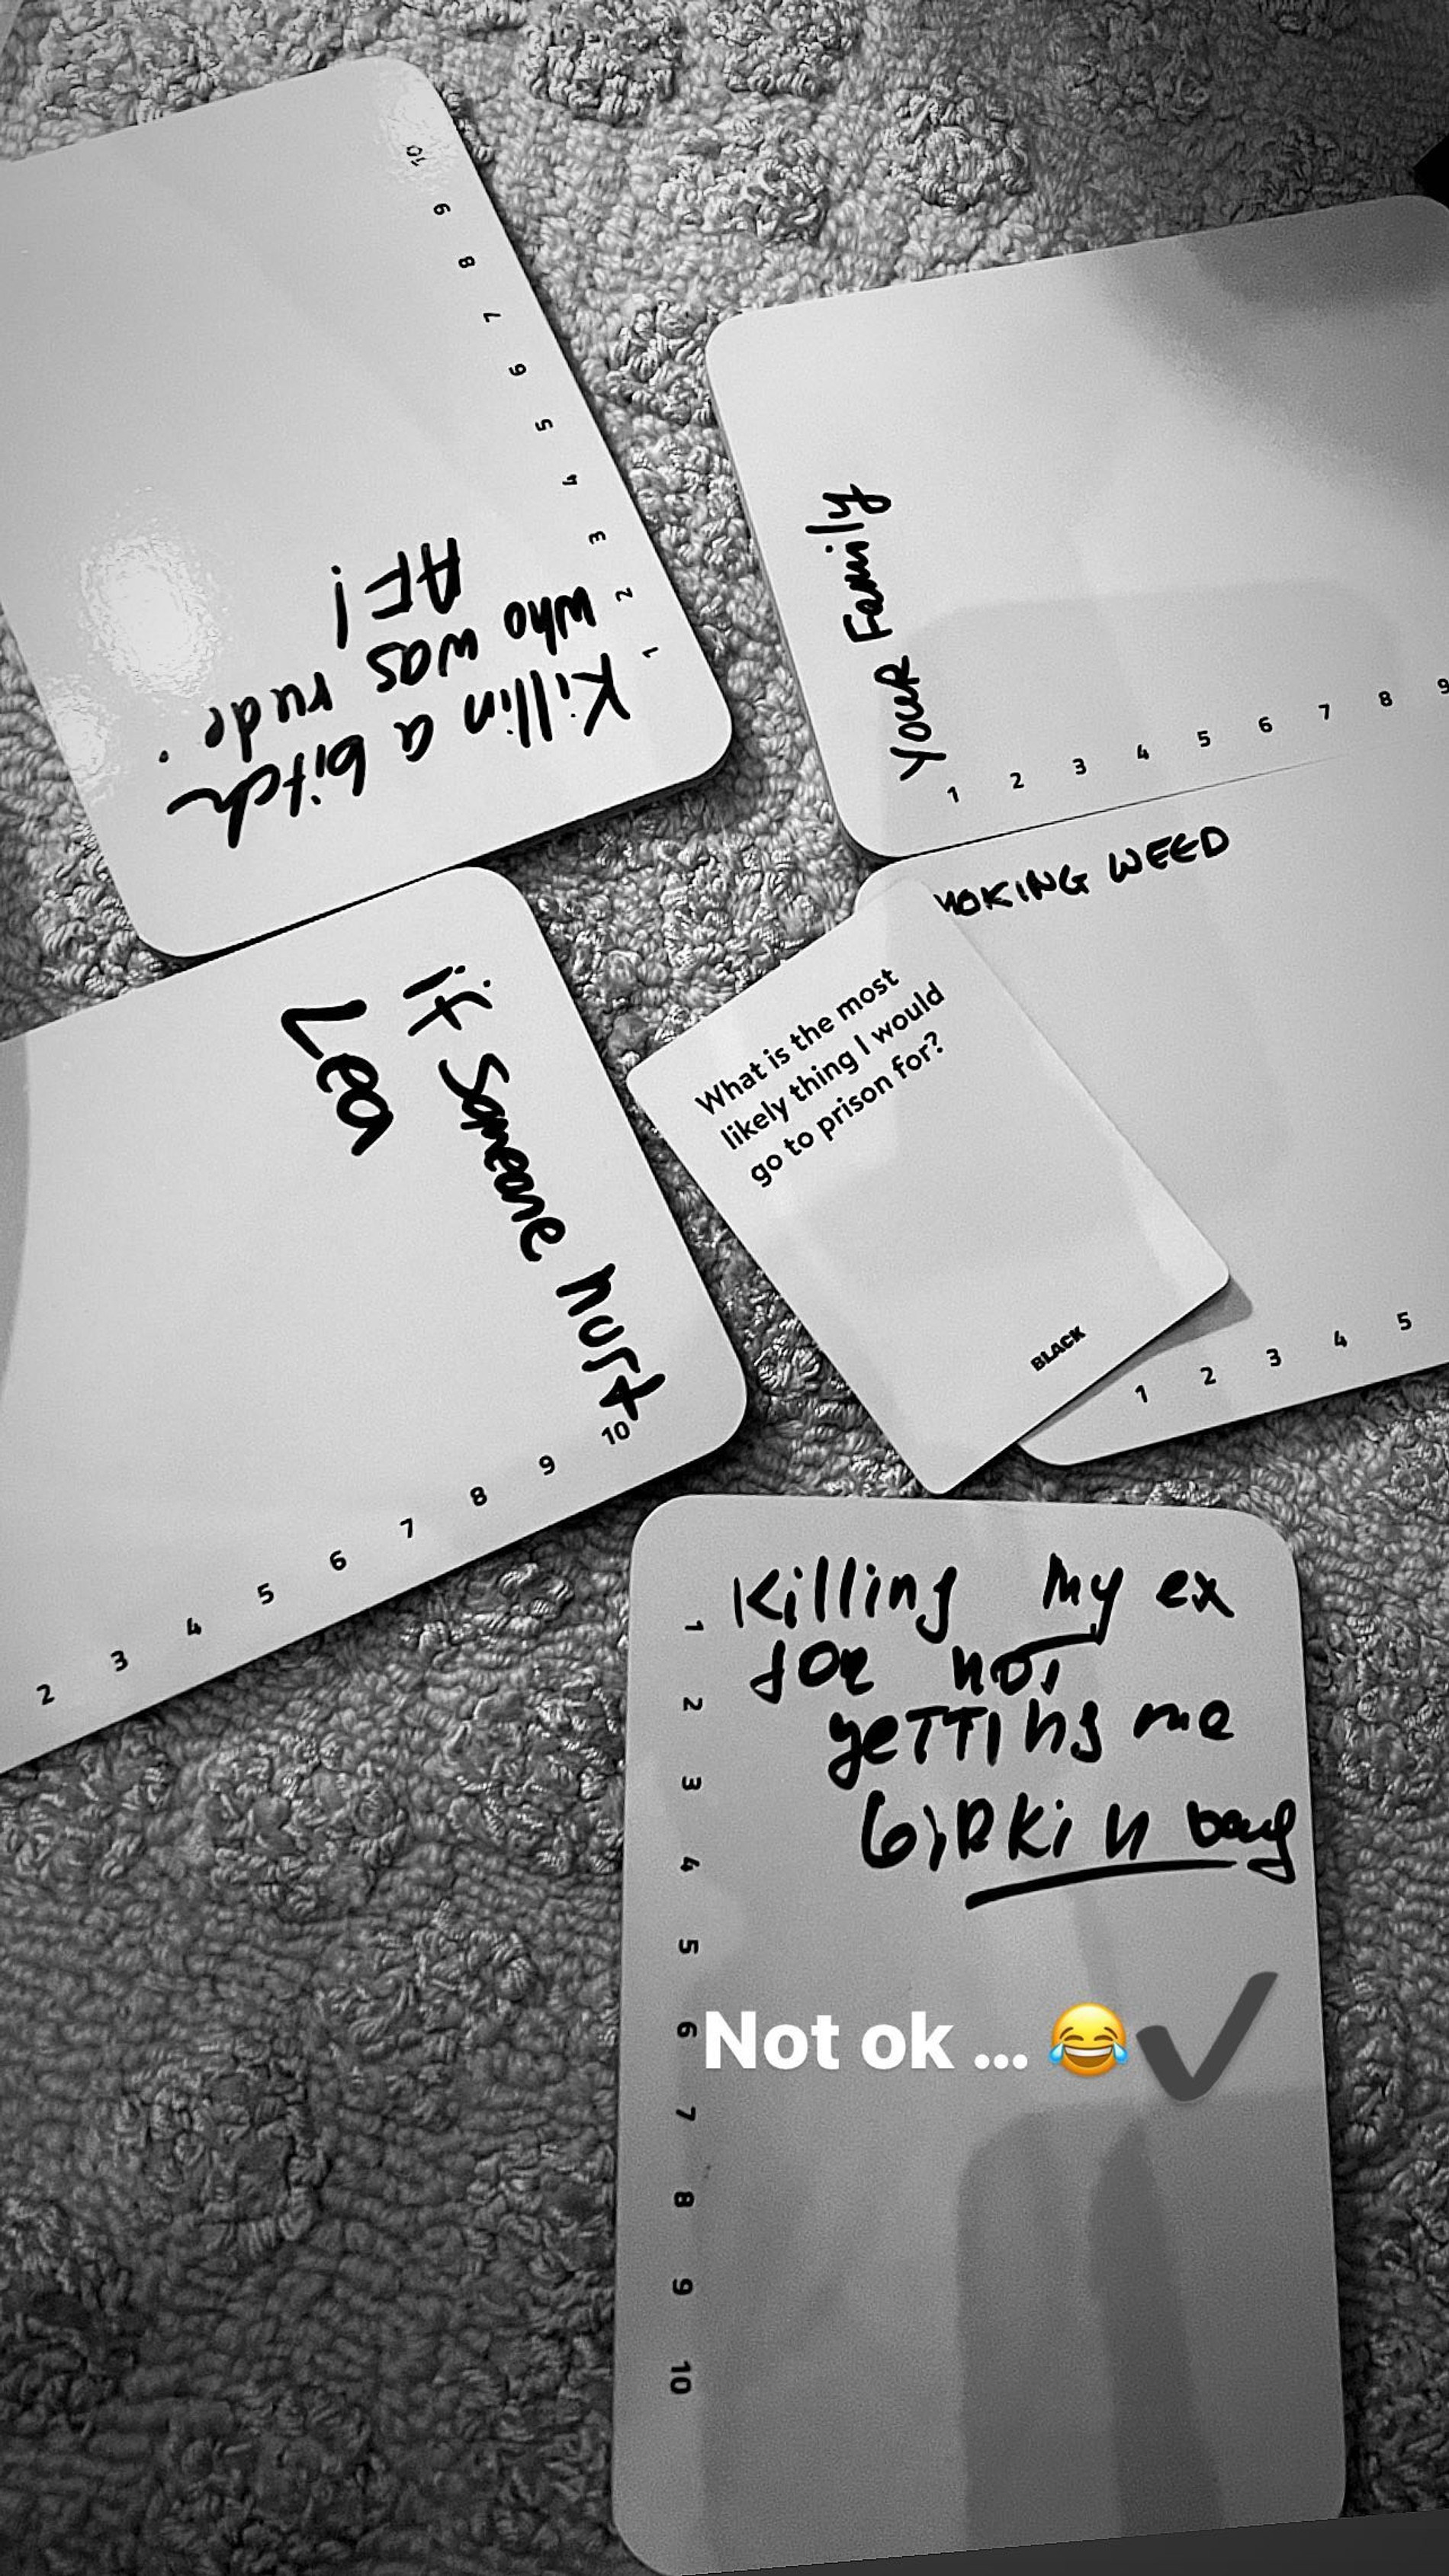 10
9
8
7
6
5
4
3
2
1
Killin a bitch
who was rude
AF!
Your Family
1
2
3
4
5
6
7
8
9
MOKING WEED
1
2
3
4
5
What is the most
likely thing I would
go to prison for?
BLACK
if someone hurt
Lea
2
3
4
5
6
7
8
9
10
Killing my ex
for not
getting me
birkin bag
1
2
3
4
5
6
7
8
9
10
Not ok ... 😂✔